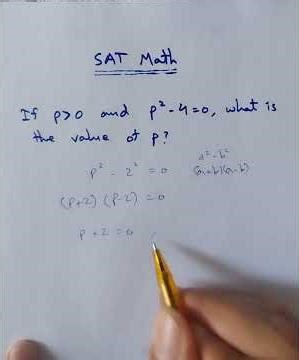 SAT Math
If p>0 and p²-4=0, what is
the value of p?
p² - 2² = 0
a² - b²
(a+b)(a-b)
(p+2)(p-2) = 0
p + 2 = 0